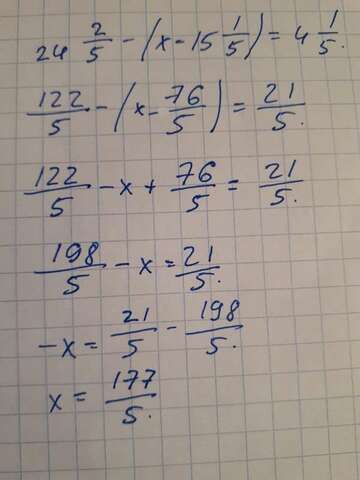 24 2/5 - (x - 15 1/5) = 4 1/5.
122/5 - (x - 76/5) = 21/5.
122/5 - x + 76/5 = 21/5.
198/5 - x = 21/5.
-x = 21/5 - 198/5.
x = 177/5.